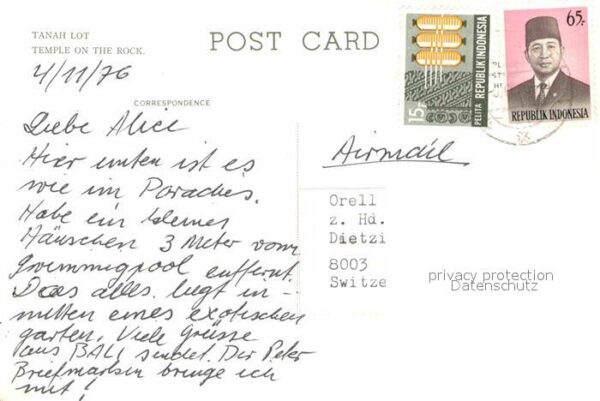 TANAH LOT
TEMPLE ON THE ROCK.
POST CARD
4/11/76
CORRESPONDENCE
Liebe Alice
Hier unten ist es
wie im Paradies.
Habe ein kleines
Häuschen 3 Meter vom
Swimmingpool entfernt.
Das alles liegt in-
mitten eines exotischen
garten. Viele Grüsse
aus BALI sendet Dir Peter
Briefmarken bringe ich
mit!
15r
PELITA
REPUBLIK INDONESIA
65.-
REPUBLIK INDONESIA
Airmail
Orell
z. Hd.
Dietzi
8003
Switze
privacy protection
Datenschutz